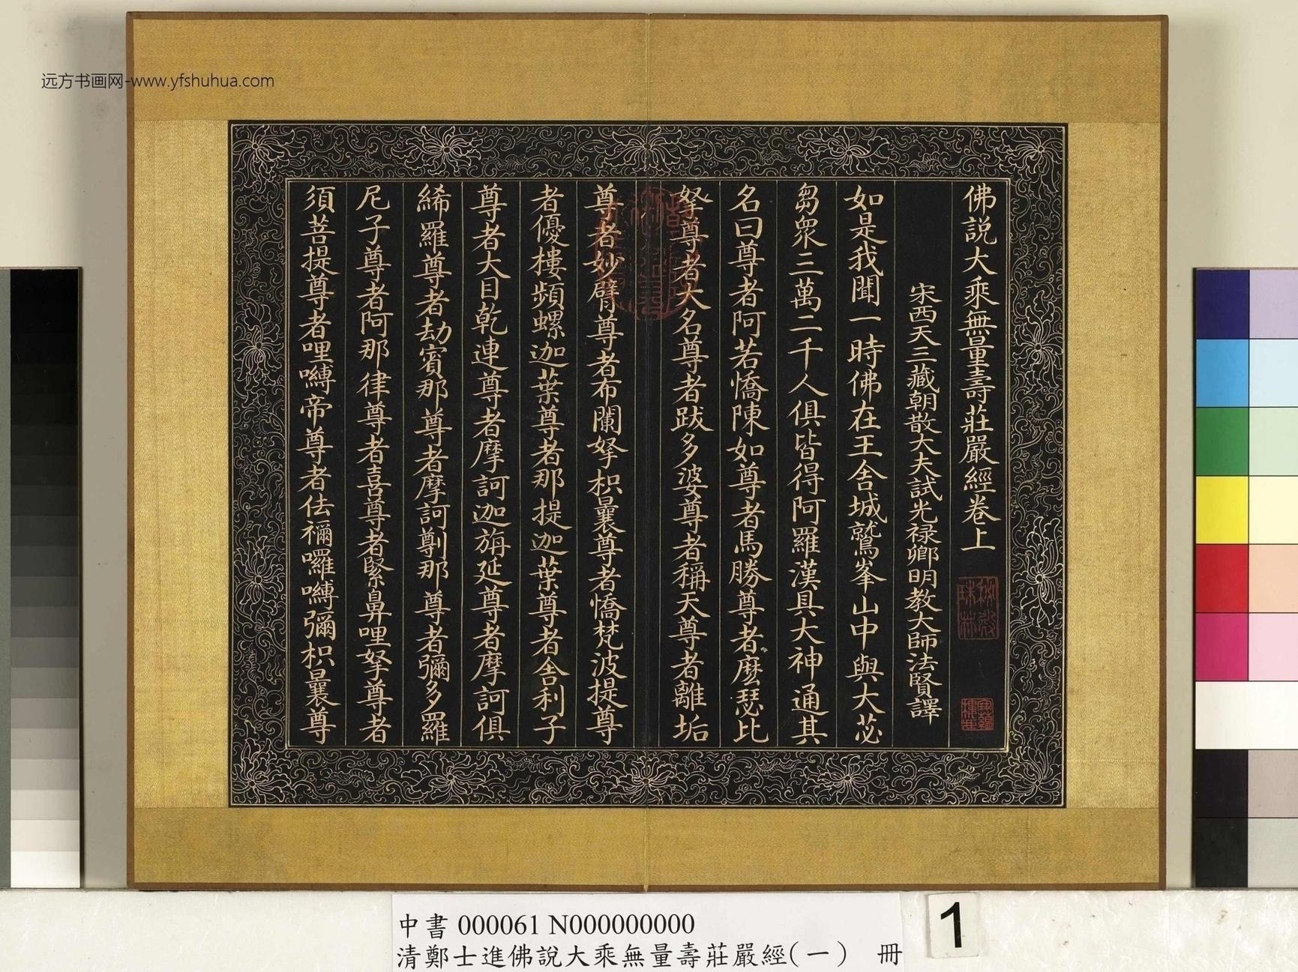 远方书画网-www.yfshuhua.com
佛說大乘無量壽莊嚴經卷上
宋西天三藏朝散大夫試光祿卿明教大師法賢譯
如是我聞一時佛在王舍城鷲峯山中與大苾
芻眾三萬二千人俱皆得阿羅漢具大神通其
名曰尊者阿若憍陳如尊者馬勝尊者麼瑟比
拏尊者大名尊者跋多婆尊者稱天尊者離垢
尊者妙臂尊者布闌拏枳曩尊者憍梵波提尊
者優樓頻螺迦葉尊者那提迦葉尊者舍利子
尊者大目乾連尊者摩訶迦旃延尊者摩訶俱
絺羅尊者劫賓那尊者摩訶㔶那尊者彌多羅
尼子尊者阿那律尊者喜尊者緊鼻哩拏尊者
須菩提尊者哩嚩帝尊者佉禰囉嚩彌枳曩尊
中書 000061 N000000000
清鄭士進佛說大乘無量壽莊嚴經(一) 冊
1